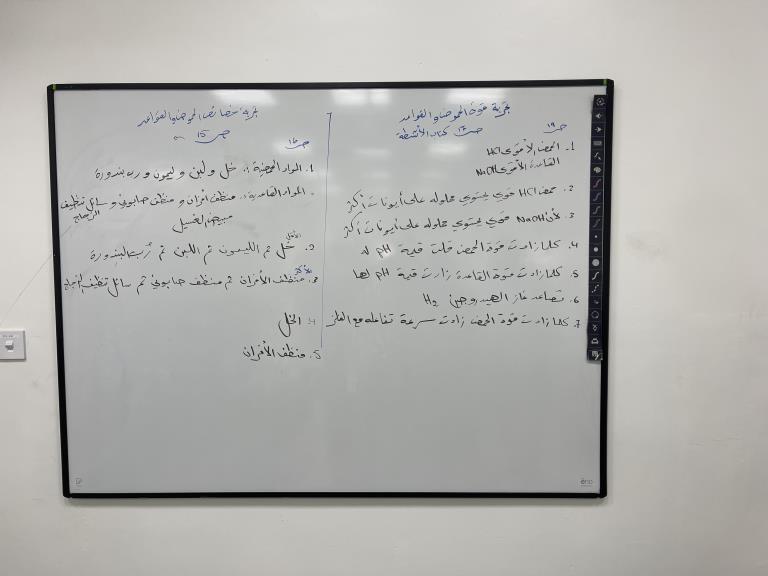 تجربة قوة الحموض والقواعد
ص ١٧ كتاب الأنشطة
ص ١٩
1. الحمض الأقوى HCl
القاعدة الأقوى NaOH
2. حمض HCl قوي يحتوي محلوله على أيونات أكثر
3. لأن NaOH قوي يحتوي محلوله على أيونات أكثر
4. كلما زادت قوة الحمض قلت قيمة pH له
5. كلما زادت قوة القاعدة زادت قيمة pH لها
6. تصاعد غاز الهيدروجين H₂
7. كلما زادت قوة الحمض زادت سرعة تفاعله مع الفلز
تجربة خصائص الحموض والقواعد
ص 15
ص ١٦
1. المواد الحمضية: خل ولبن وليمون ورب بندورة
المواد القاعدية: منظف أفران ومنظف صابوني وسائل تنظيف الزجاج
مبيض الغسيل
الأقل
2. خل ثم الليمون ثم اللبن ثم رُب البندورة
الأكثر
3. منظف الأفران ثم منظف صابوني ثم سائل تنظيف الزجاج
4. الخل
5. منظف الأفران
eno